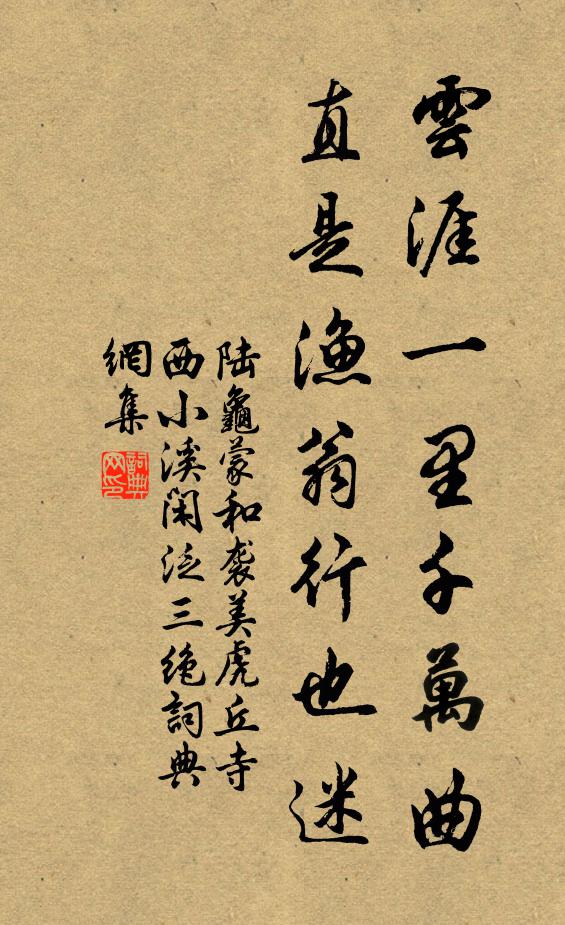 雲涯一里千萬曲
直是漁翁行也迷
陆龜蒙和袭美虎丘寺
西小溪閑泛三绝詞典
網集
詞典
网印